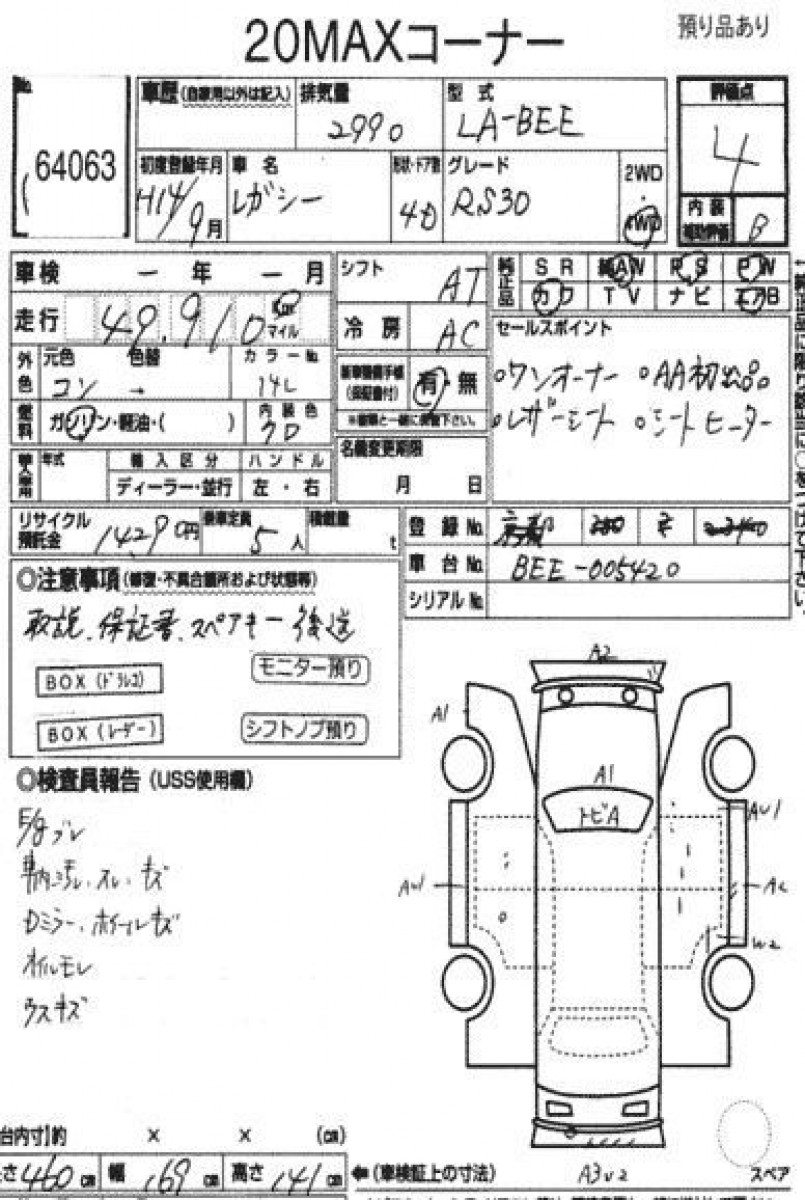 20MAXコーナー 預り品あり
No. 64063
車歴 (自家用以外は記入) 排気量 2990 型式 LA-BEE 評価点 4
初度登録年月 H14/9月 車名 レガシー 形状・ドア数 4D グレード RS30 2WD・4WD 内装補助評価 B
車検 ー年 ー月 シフト AT 純正品 SR 純AW PS PW
走行 49,910 Km マイル 冷房 AC カワ TV ナビ エアB
外色 元色 コン 色替 → カラーNo. 14L 新車整備手帳 (保証書付) 有・無 ※書類と一緒に提出下さい。
セールスポイント
○ワンオーナー ○AA初出品。
○レザーシート ○シートヒーター
燃料 ガソリン・軽油・( ) 内装色 クロ
輸入車用 年式 輸入区分 ディーラー・並行 ハンドル 左・右 名義変更期限 月 日
リサイクル預託金 14290円 乗車定員 5人 積載量 t 登録No. 京都
車台No. BEE-005420
シリアルNo.
◎注意事項 (修復・不具合箇所および状態等)
取説、保証書、スペアキー後送
BOX (ドラレコ) モニター預り
BOX (レーダー) シフトノブ預り
◎検査員報告 (USS使用欄)
F/gブレ
車内ヨゴレ、スレ、キズ
Dミラー、ホイールキズ
オイルモレ
ウスキズ
A2
A1
A1
トビA
AU1
AU1
W2
A3 U2
スペア
台内寸】約 × × (cm)
長さ 460cm 幅 169cm 高さ 141cm ←(車検証上の寸法)